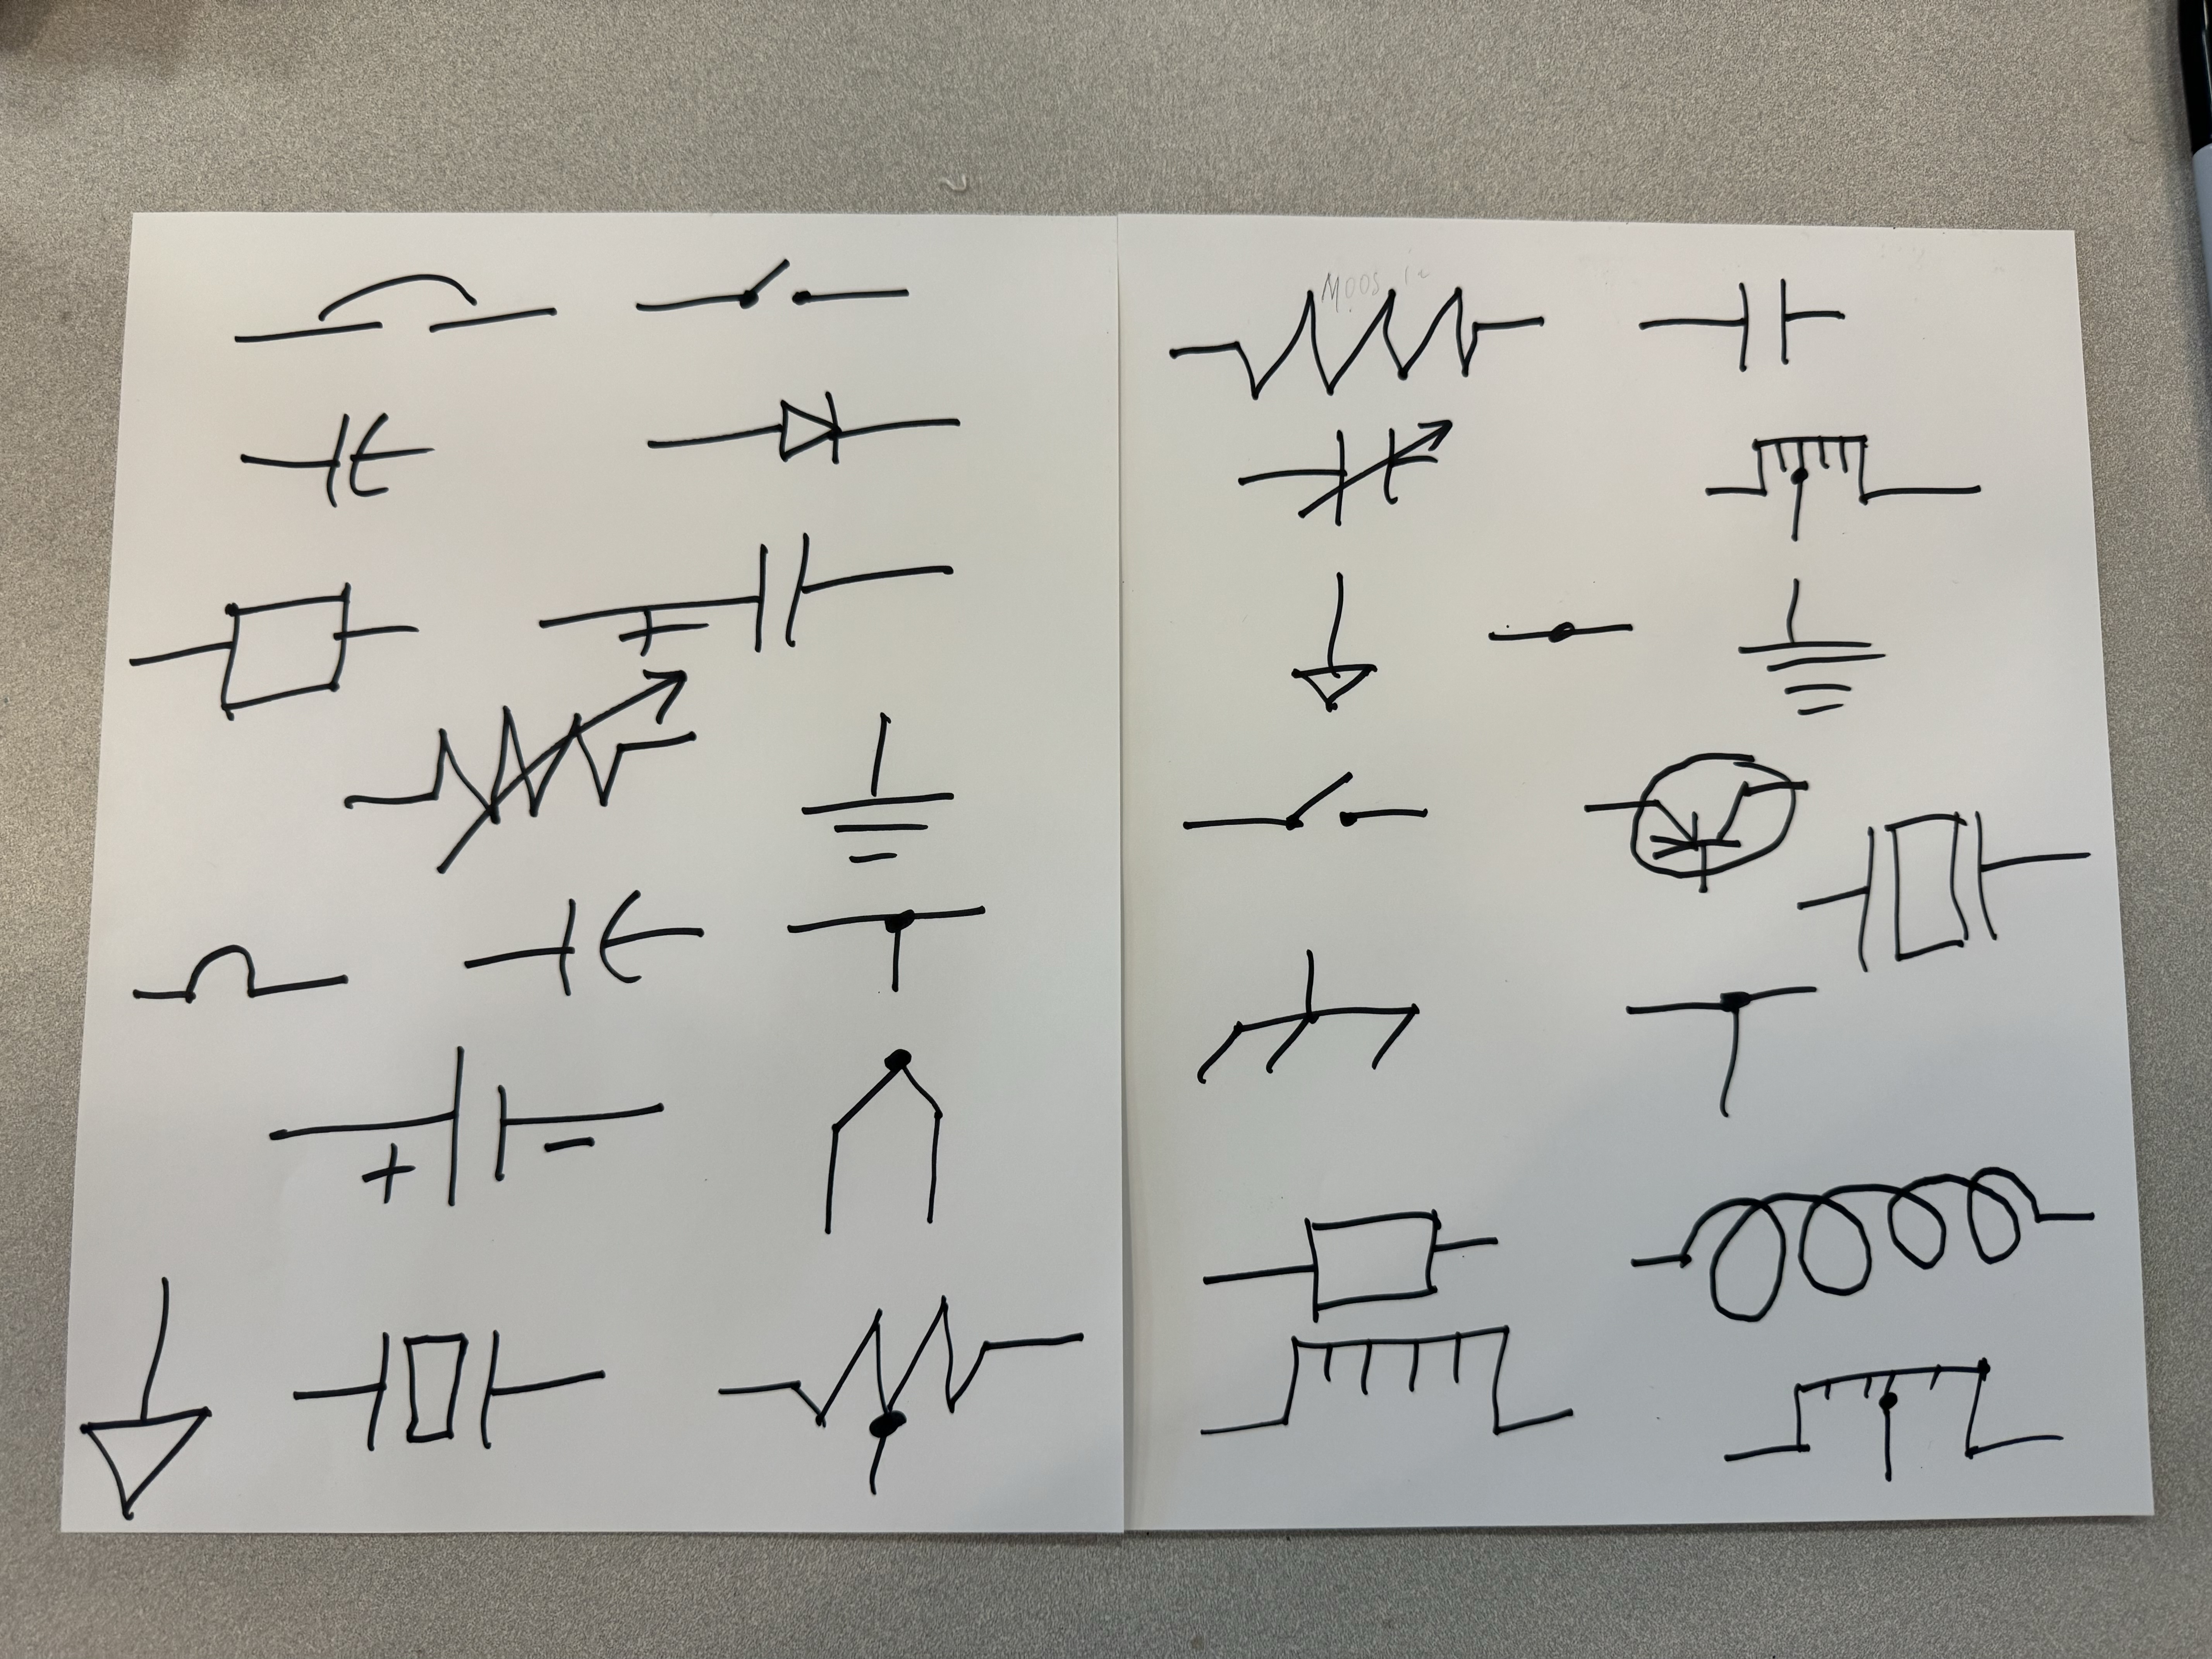 Moos
+
+ -